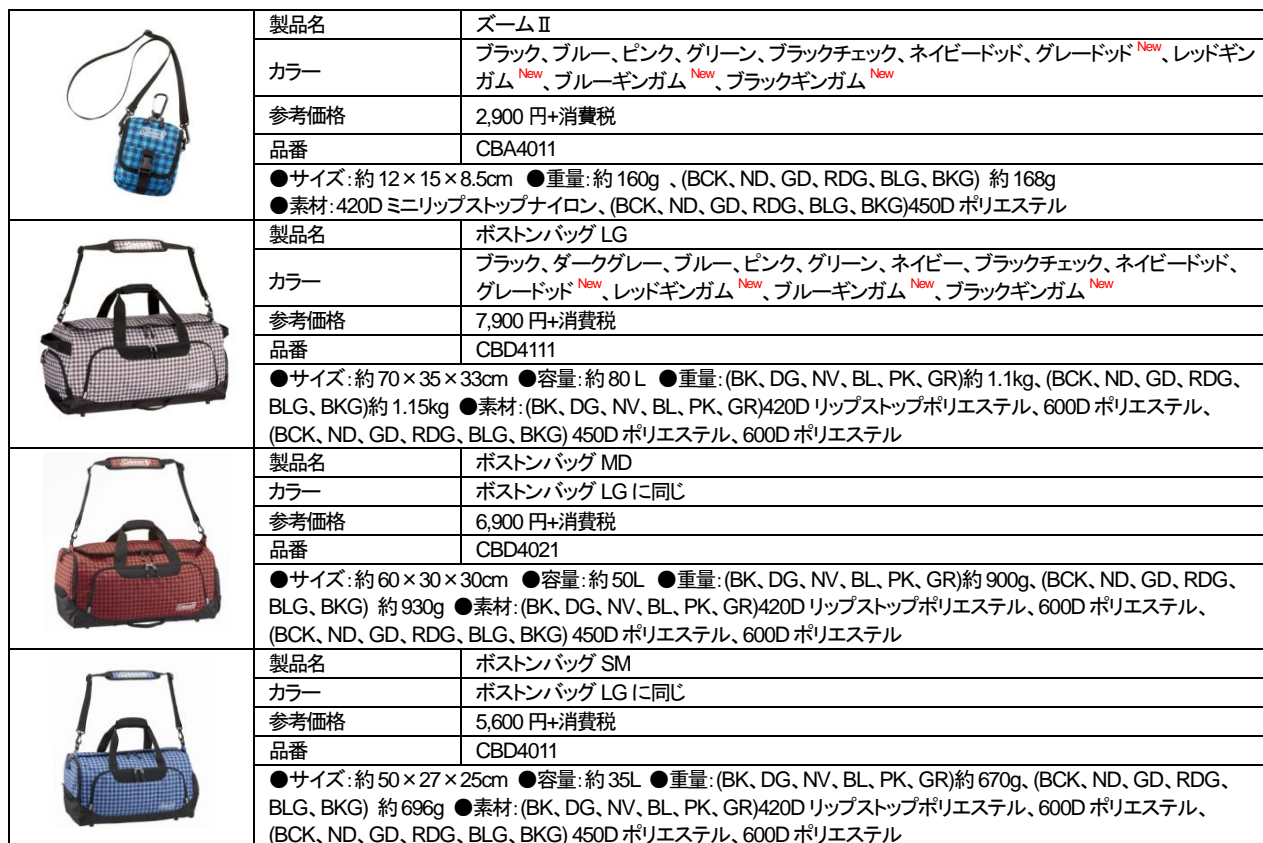 製品名 ズームⅡ
カラー ブラック、ブルー、ピンク、グリーン、ブラックチェック、ネイビードッド、グレードッド New、レッドギン
ガム New、ブルーギンガム New、ブラックギンガム New
参考価格 2,900 円+消費税
品番 CBA4011
●サイズ：約 12×15×8.5cm ●重量：約 160g 、(BCK、ND、GD、RDG、BLG、BKG) 約 168g
●素材：420D ミニリップストップナイロン、(BCK、ND、GD、RDG、BLG、BKG)450D ポリエステル
製品名 ボストンバッグ LG
カラー ブラック、ダークグレー、ブルー、ピンク、グリーン、ネイビー、ブラックチェック、ネイビードッド、
グレードッド New、レッドギンガム New、ブルーギンガム New、ブラックギンガム New
参考価格 7,900 円+消費税
品番 CBD4111
●サイズ：約 70×35×33cm ●容量：約 80 L ●重量：(BK、DG、NV、BL、PK、GR)約 1.1kg、(BCK、ND、GD、RDG、
BLG、BKG)約 1.15kg ●素材：(BK、DG、NV、BL、PK、GR)420D リップストップポリエステル、600D ポリエステル、
(BCK、ND、GD、RDG、BLG、BKG) 450D ポリエステル、600D ポリエステル
製品名 ボストンバッグ MD
カラー ボストンバッグ LG に同じ
参考価格 6,900 円+消費税
品番 CBD4021
●サイズ：約 60×30×30cm ●容量：約 50L ●重量：(BK、DG、NV、BL、PK、GR)約 900g、(BCK、ND、GD、RDG、
BLG、BKG) 約 930g ●素材：(BK、DG、NV、BL、PK、GR)420D リップストップポリエステル、600D ポリエステル、
(BCK、ND、GD、RDG、BLG、BKG) 450D ポリエステル、600D ポリエステル
製品名 ボストンバッグ SM
カラー ボストンバッグ LG に同じ
参考価格 5,600 円+消費税
品番 CBD4011
●サイズ：約 50×27×25cm ●容量：約 35L ●重量：(BK、DG、NV、BL、PK、GR)約 670g、(BCK、ND、GD、RDG、
BLG、BKG) 約 696g ●素材：(BK、DG、NV、BL、PK、GR)420D リップストップポリエステル、600D ポリエステル、
(BCK、ND、GD、RDG、BLG、BKG) 450D ポリエステル、600D ポリエステル